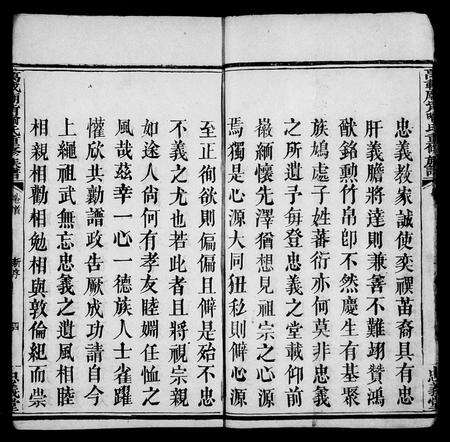 忠義教家誠使奕禩苗裔具有忠
肝義膽將達則兼善不難翊贊鴻
猷銘勲竹帛卽不然慶生有基聚
族鳩處子姓蕃衍亦何莫非忠義
之所遺予每登忠義之堂載仰前
徽緬懷先澤猶想見祖宗之心源
焉獨是心源大同狃私則僻心源
至正徇欲則偏偏且僻是殆不忠
不義之尤也若此者且將視宗親
如途人尚何有孝友睦婣任恤之
風哉兹幸一心一德族人士雀躍
懽欣共勷譜政告厥成功請自今
上繩祖武無忘忠義之遺風相睦
相親相勸相勉相與敦倫紀而崇
卷首
新序
四
忠義堂